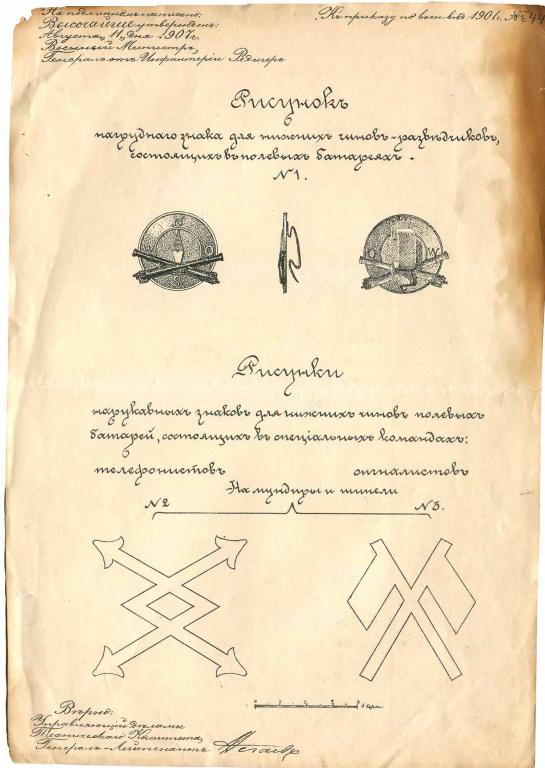 На подлинномъ написано:
ВЫСОЧАЙШЕ утвержденъ:
Августа, 11, дня 1907г.
Военный Министръ,
Генералъ отъ Инфантеріи Редигеръ
Къ приказу по воен. вѣд. 1907г. № 44
Рисунокъ
нагруднаго знака для нижнихъ чиновъ-развѣдчиковъ,
состоящихъ въ полевыхъ батареяхъ.
№1.
N
O
W
Рисунки
нарукавныхъ знаковъ для нижнихъ чиновъ полевыхъ
батарей, состоящихъ въ спеціальныхъ командахъ:
телефонистовъ сигналистовъ
На мундиры и шинели
№2 №3.
Вѣрно:
Управляющій дѣлами
Техническаго Комитета,
Генералъ-Лейтенантъ